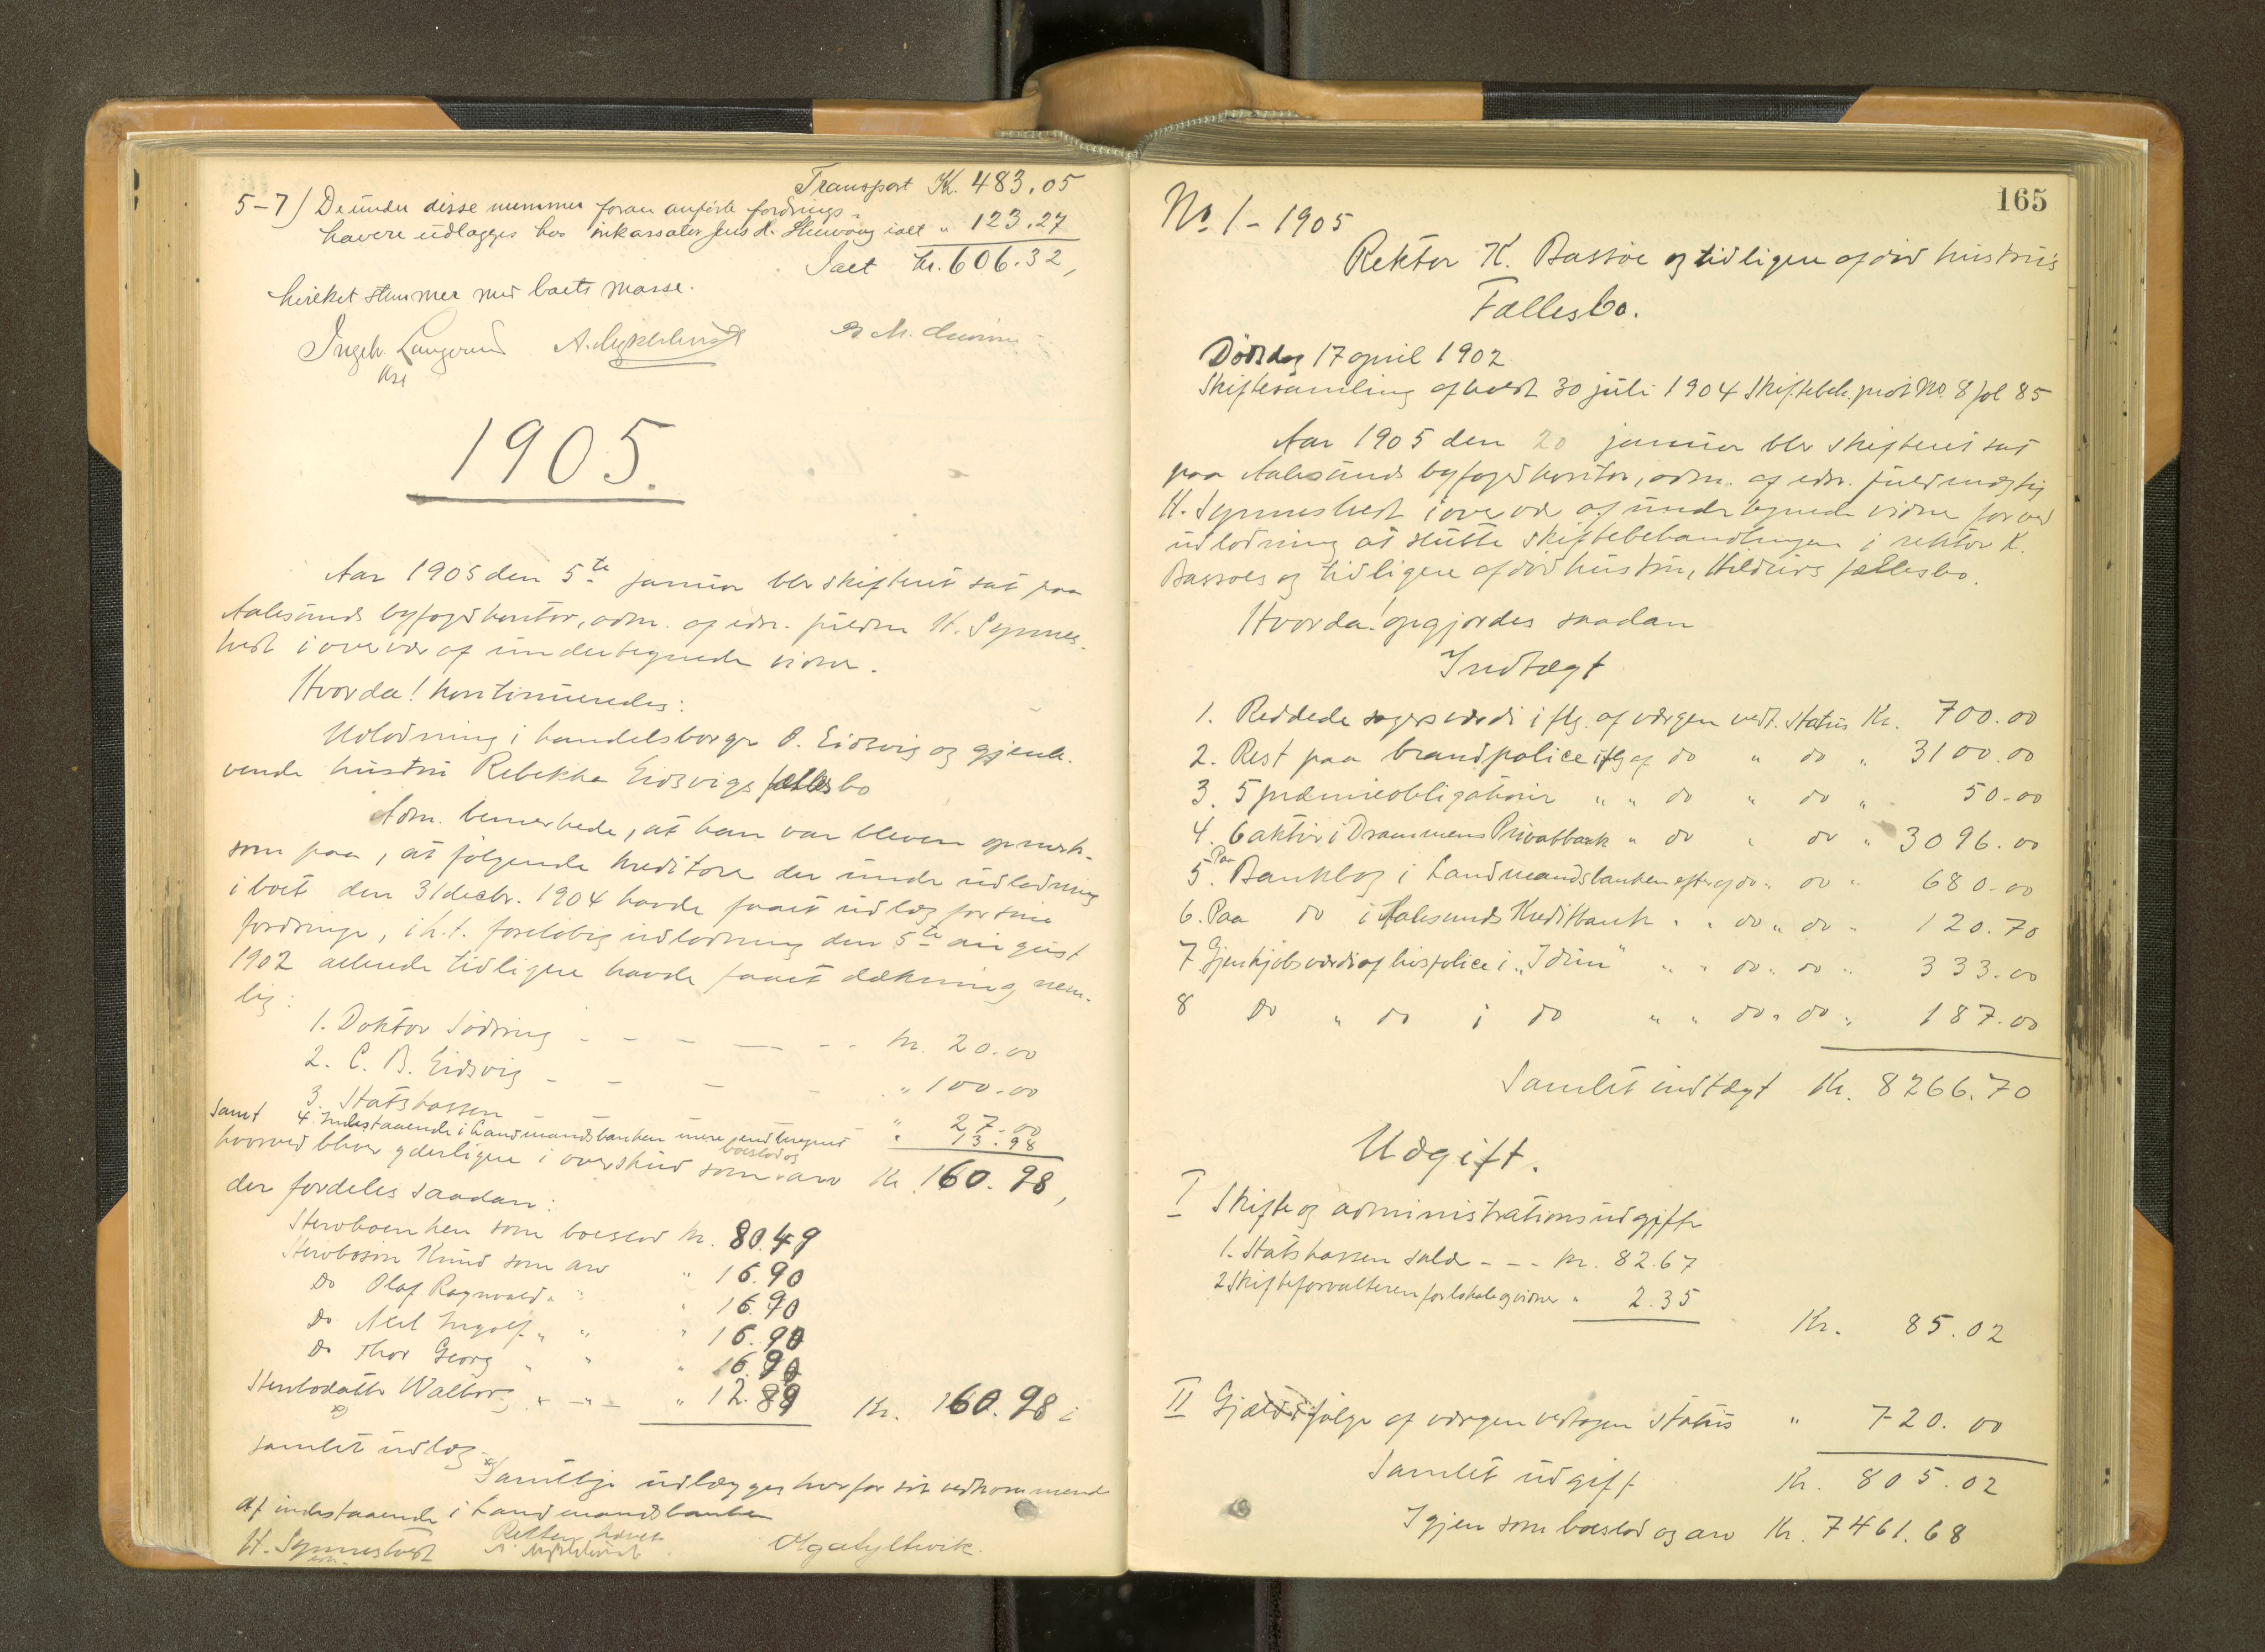 Transport Kr. 483.05
5-7) De under disse nummer foran anførte fordrings-
havere udlægges hos inkassator Jens A. ialt " 123.27
Ialt Kr. 606.32,
hvilket stemmer med boets masse.
Ingebr. Langeland A. Myklebust
1905.
Aar 1905 den 5te januar blev skifteret sat paa
Aalesunds byfogdkontor, adm. af edsv. fuldm H. Synnes-
tvedt i overvær af undertegnede vidner.
Hvorda! kontinueredes:
Udlodning i handelsborger O. Eidsvig og gjenle-
vende hustru Rebekka Eidsvigs fællesbo
Adm. bemerkede, at han var bleven opmerk-
som paa, at følgende kreditorer der under udlodning
i boet den 31 decbr. 1904 havde faaet udlæg for sine
fordringer, i h.t. foreløbig udlodning den 5te august
1902 allerede tidligere havde faaet dækning nem-
lig:
1. Doktor Sødring - - - - - Kr. 20.00
2. C. B. Eidsvig - - - - " 100.00
3. Statskassen - " 27.00
samt 4. Indestaaende i Landmandsbanken mere end beregnet " 13.98
hvorved bliver yderligere i overskud som boeslod og arv Kr. 160.98,
der fordeles saadan:
Stervboenken som boeslod Kr. 80.49
Stervbosøn Knud som arv " 16.90
Do Olaf Ragnvald " " " 16.90
Do Axel Ingolf " " " 16.90
Do Thor Georg " " " 16.90
Stervbodatter Walborg " - " - " 12.89 Kr. 160.98 i
x)
samlet udlæg.
x) Samtlige udlægges hver for sit vedkommende
af indestaaende i Landmandsbanken
Retten hævet
H. Synnestvedt A. Myklebust
edsv.
165
No. 1 - 1905
Rektor K. Bassøe og tidligere afdød hustru's
Fællesbo.
Dødsdag 17 april 1902
Skiftesamling afholdt 30 juli 1904 Skiftebeh. prot No. 8 fol 85
Aar 1905 den 20 januar blev skifteret sat
paa Aalesunds byfogdkontor, adm. af edsv. fuldmægtig
H. Synnestvedt i overvær af undertegnede vidner for ved
udlodning at slutte skiftebehandlingen i rektor K.
Bassøes og tidligere afdød hustru, Hildurs fællesbo.
Hvorda! opgjordes saadan
Indtægt
1. Reddede sagers værdi iflg. af værgen vedt. status Kr. 700.00
2. Rest paa brandpolice iflg af do " do " 3100.00
3. 5 præmieobligationer " " do " do " 50.00
4. 6 aktier i Drammens Privatbank " do " do " 3096.00
5. Paa Bankbog i Landmandsbanken efter af do " do " 680.00
6. Paa do i Aalesunds Kreditbank " " do " do " 120.70
7 Gjenkjøbsværdi af livspolice i "Idun" " " do " do " 333.00
8 Do " do i do " " do " do " 187.00
Samlet indtægt Kr. 8266.70
Udgift.
I Skifte og administrationsudgifter
1. Statskassen saldo - - - Kr. 82.67
2 Skifteforvalteren for lokale og vidner " 2.35
Kr. 85.02
II Gjæld ifølge af værgen vedtagen status " 720.00
Samlet udgift Kr. 805.02
Igjen som boeslod og arv Kr. 7461.68